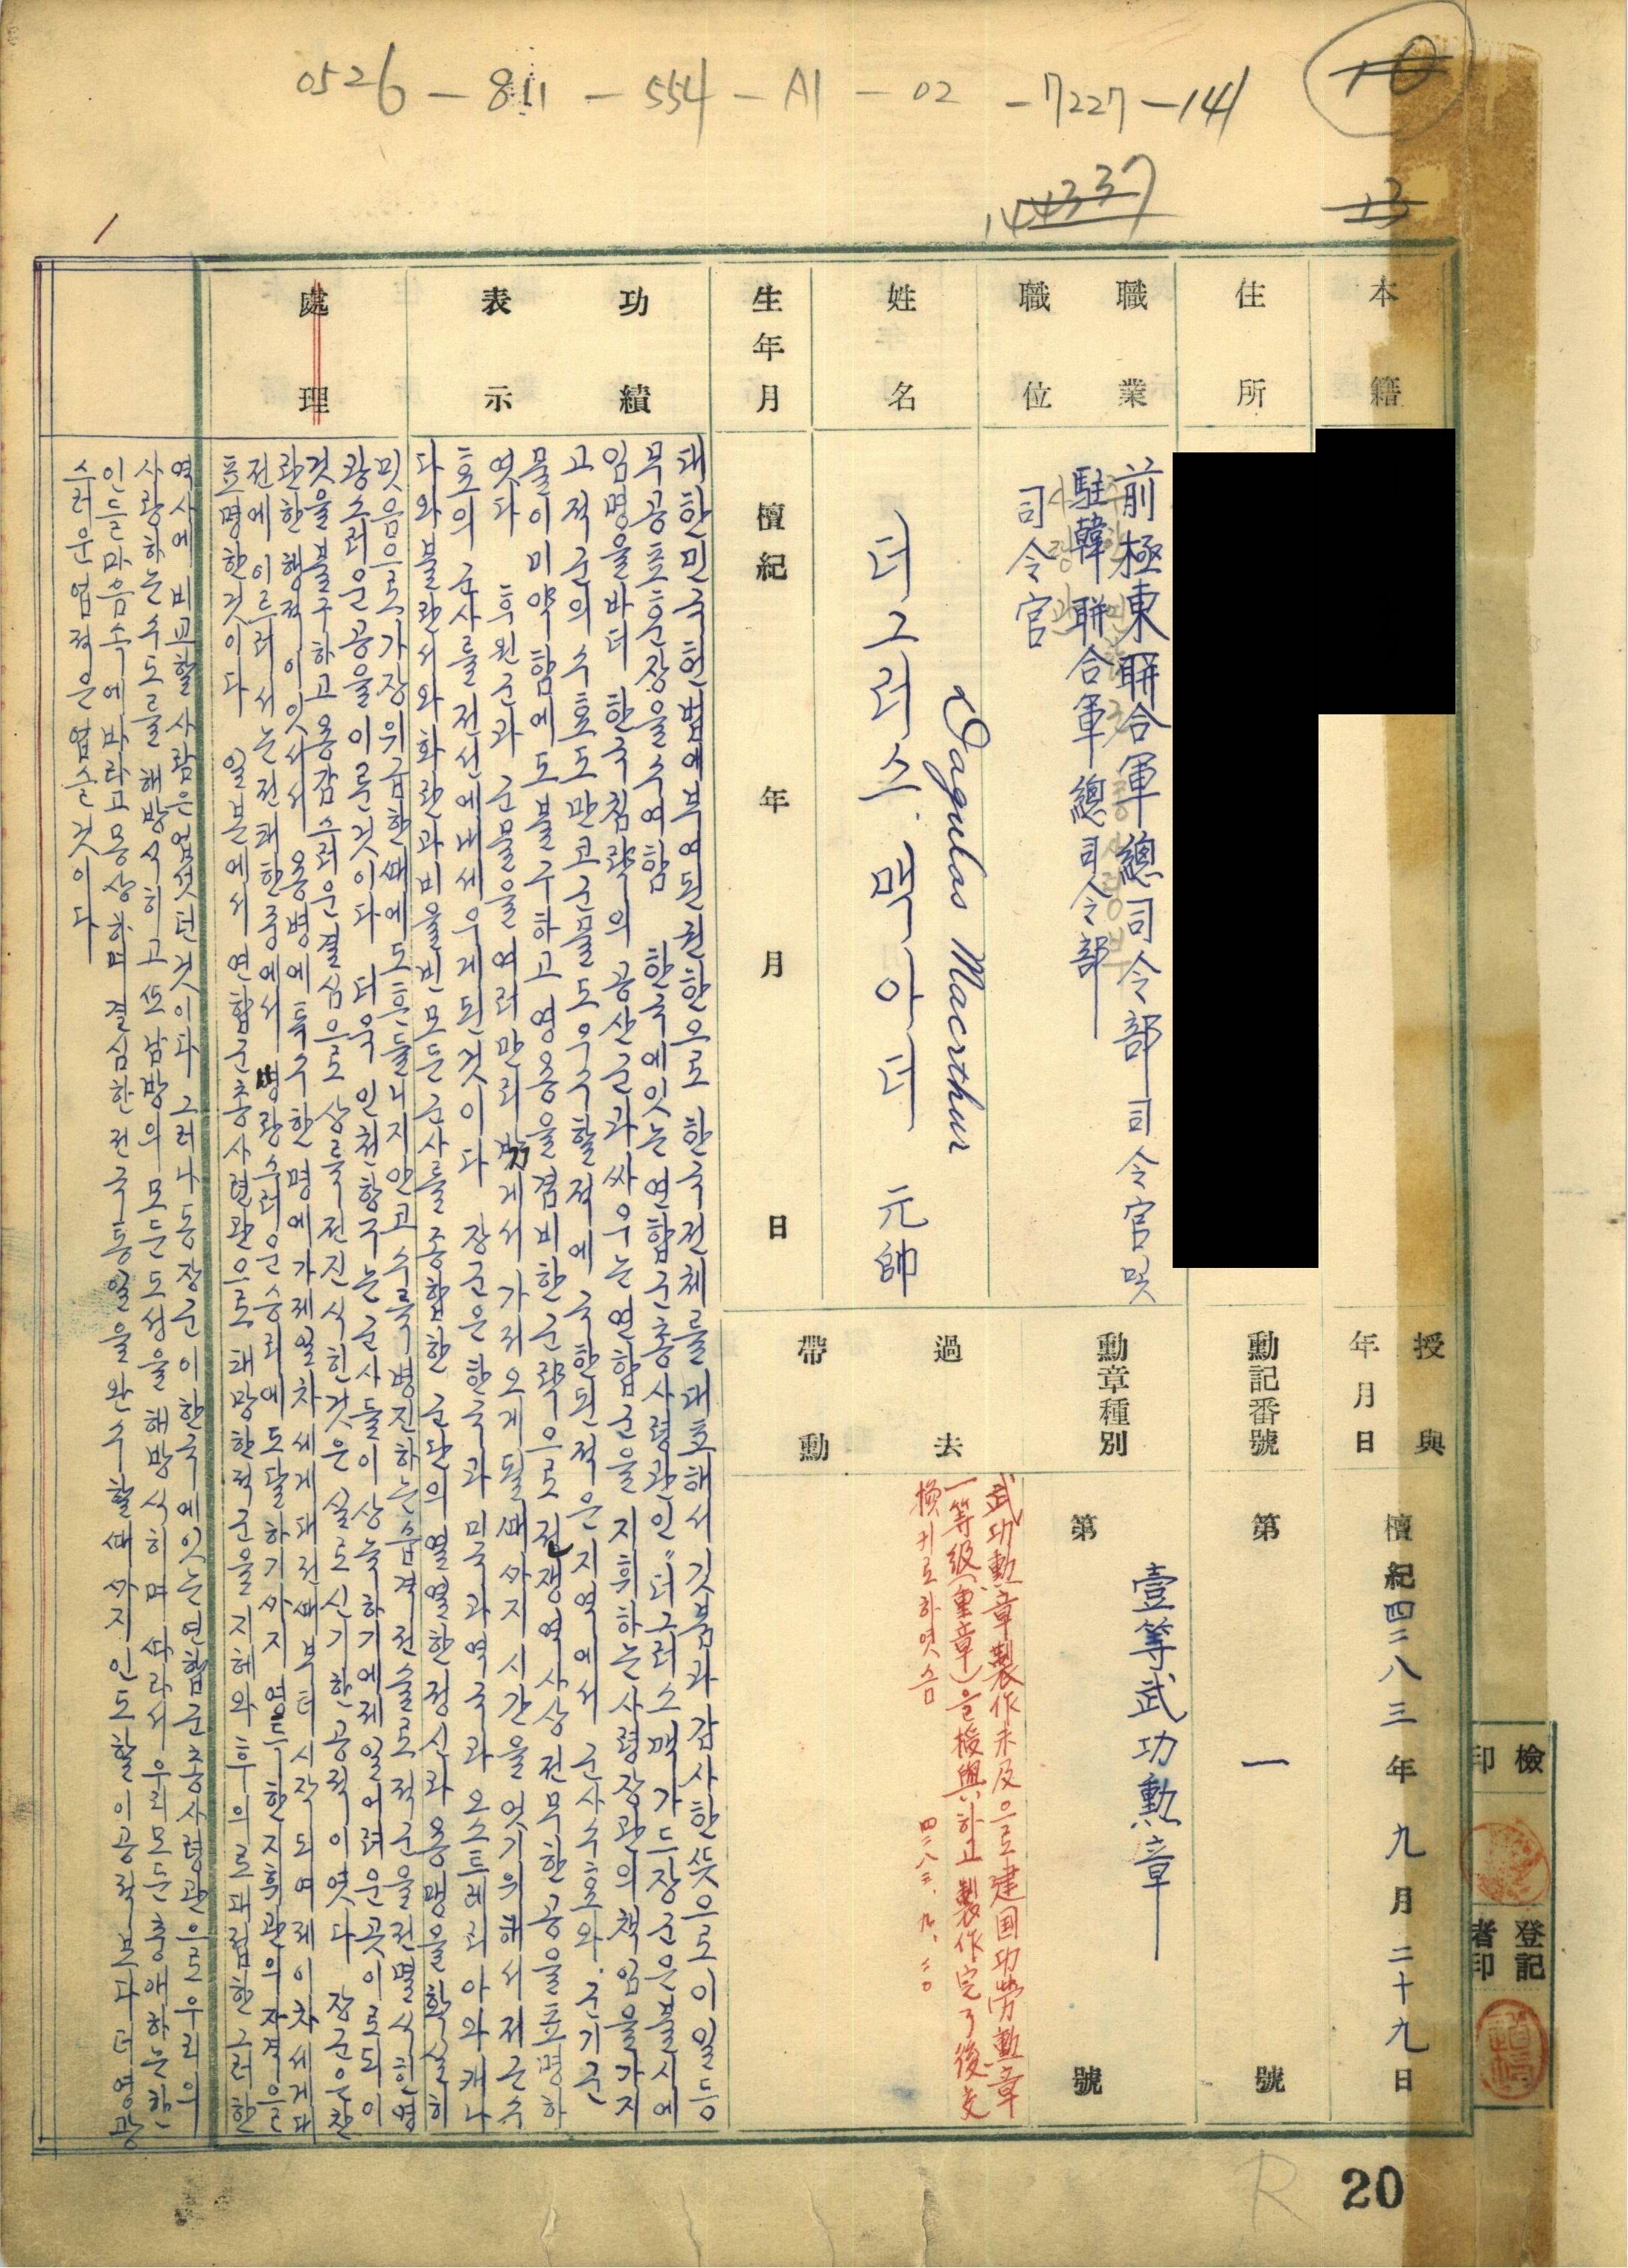 0526-811-554-A1-02-7227-141
10
14337
13
本籍
住所
職業
職位
前極東聯合軍總司令部司令官 및
駐韓聯合軍總司令部
司令官
姓名
Dagulas Macrthur
더그러스. 맥아더 元帥
生年月
檀紀 年 月 日
授與
年月日
檀紀四二八三年九月二十九日
勳記番號
第 一 號
勳章種別
第 號
壹等武功勳章
過去
帶勳
武功勳章製作未及으로建国功勞勳章
一等級(重章)을授與하고製作完了後交
換키로하엿슴
四二八三.九.二〇
功績
表示
대한민국헌법에부여된권한으로 한국전체를대표해서 깃붐과감사한뜻으로이일등
무공표훈장을수여함 한국에잇는연합군총사령관인"더그러스맥가드장군은불시에
임명을바더 한국침략의 공산군과싸우는연합군을 지휘하는사령장관의책임을가지
고 적군의 수효도만코군물도우수할적에 국한된적은지역에서 군사수효와. 군기군
물이미약함에도불구하고 영용을겸비한군략으로 전쟁역사상전무한공을표명하
엿다 후원군과 군물을여러만리밖게서 가저오게될때까지시간을엇기위해서저근수
효의 군사를전선에내세우게된것이다 장군은한국과미국과영국과오스트레리아와캐나
다와불란서와화란과비율빈모든군사를종합한군단의열열한정신과용맹을확실히
밋음으로. 가장위급한때에도흔들니지안고수륙병진하는습격전술로적군을전멸식힌영
광스러운공을이룬것이다 더욱 인천항구는군사들이상륙하기에제일어려운곳이로되이
것을불구하고용감스러운결심으로상륙전진식힌것은실로신기한공적이엿다 장군은찬
란한행적이잇서서 용병에특수한명예가제일차세계대전때부터시작되여제이차세게대
전에이르러서는전패한중에서 명랑스러운승리에도달하기까지 영특한지휘관의자격을
표명한것이다 일본에서연합군총사령관으로패망한적군을지혜와후의로대접한그러한
處理
역사에비교할사람은업섯던것이다 그러나동장군이한국에잇는연합군총사령관으로우리의
사랑하는수도를해방식히고또남방의모든도성을해방식히며 따라서우리모든충애하는한
인들마음속에바라고몽상하며결심한전국통일을완수할때까지인도할이공적보다더영광
스러운업적은업슬것이다
檢印
登記者印
R
20